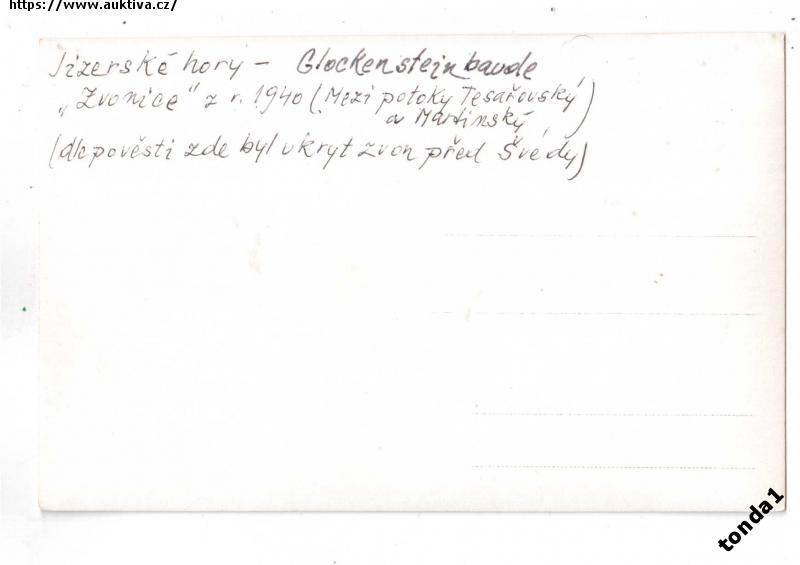 https://www.auktiva.cz/
Jizerské hory - Glockensteinbaude
„Zvonice" z r. 1940 (Mezi potoky Tesařovský
a Martinský)
(dle pověsti zde byl ukryt zvon před Švédy)
tonda1